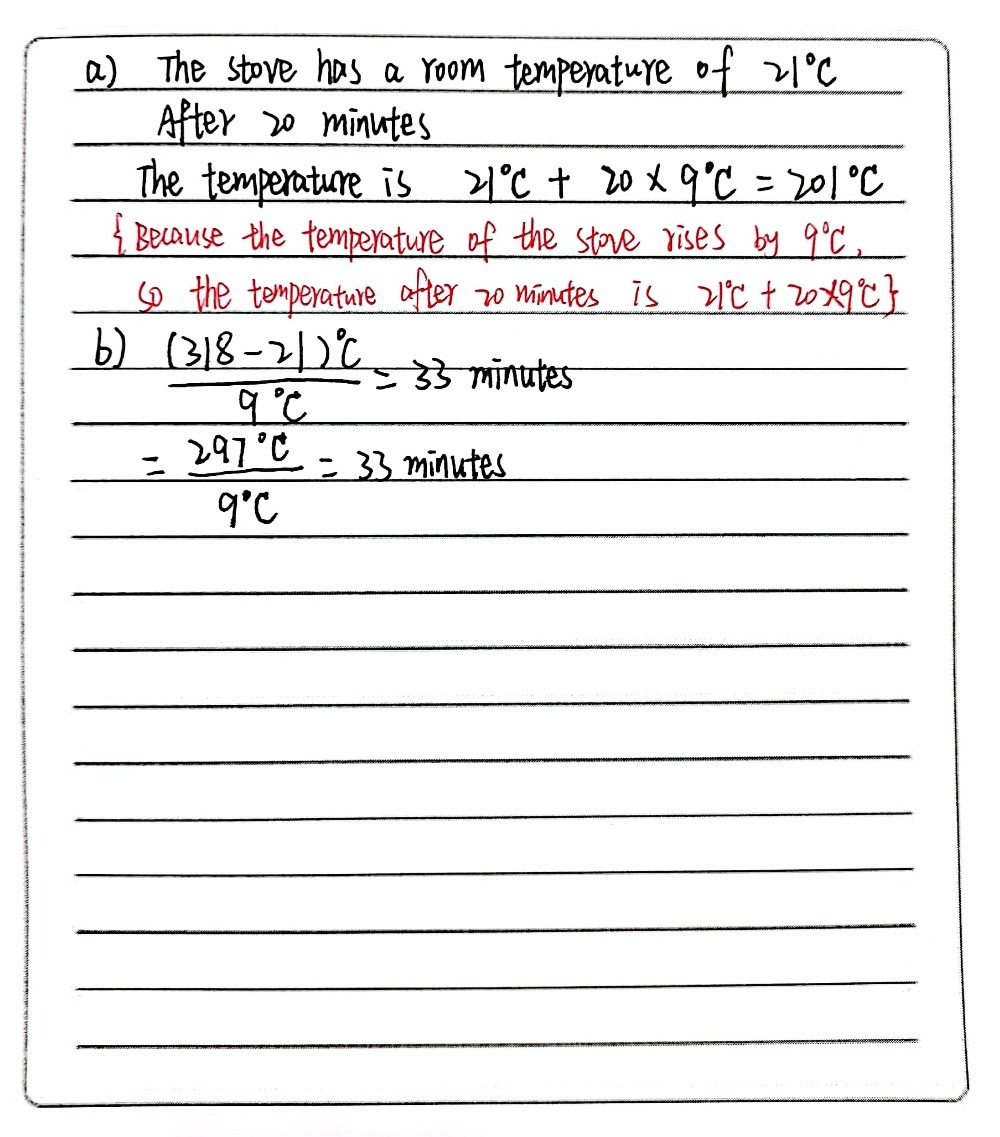 a) The stove has a room temperature of 21°C
After 20 minutes
The temperature is 21°C + 20 × 9°C = 201°C
{Because the temperature of the stove rises by 9°C,
so the temperature after 20 minutes is 21°C + 20×9°C}
b) (318-21)°C / 9°C = 33 minutes
= 297°C / 9°C = 33 minutes